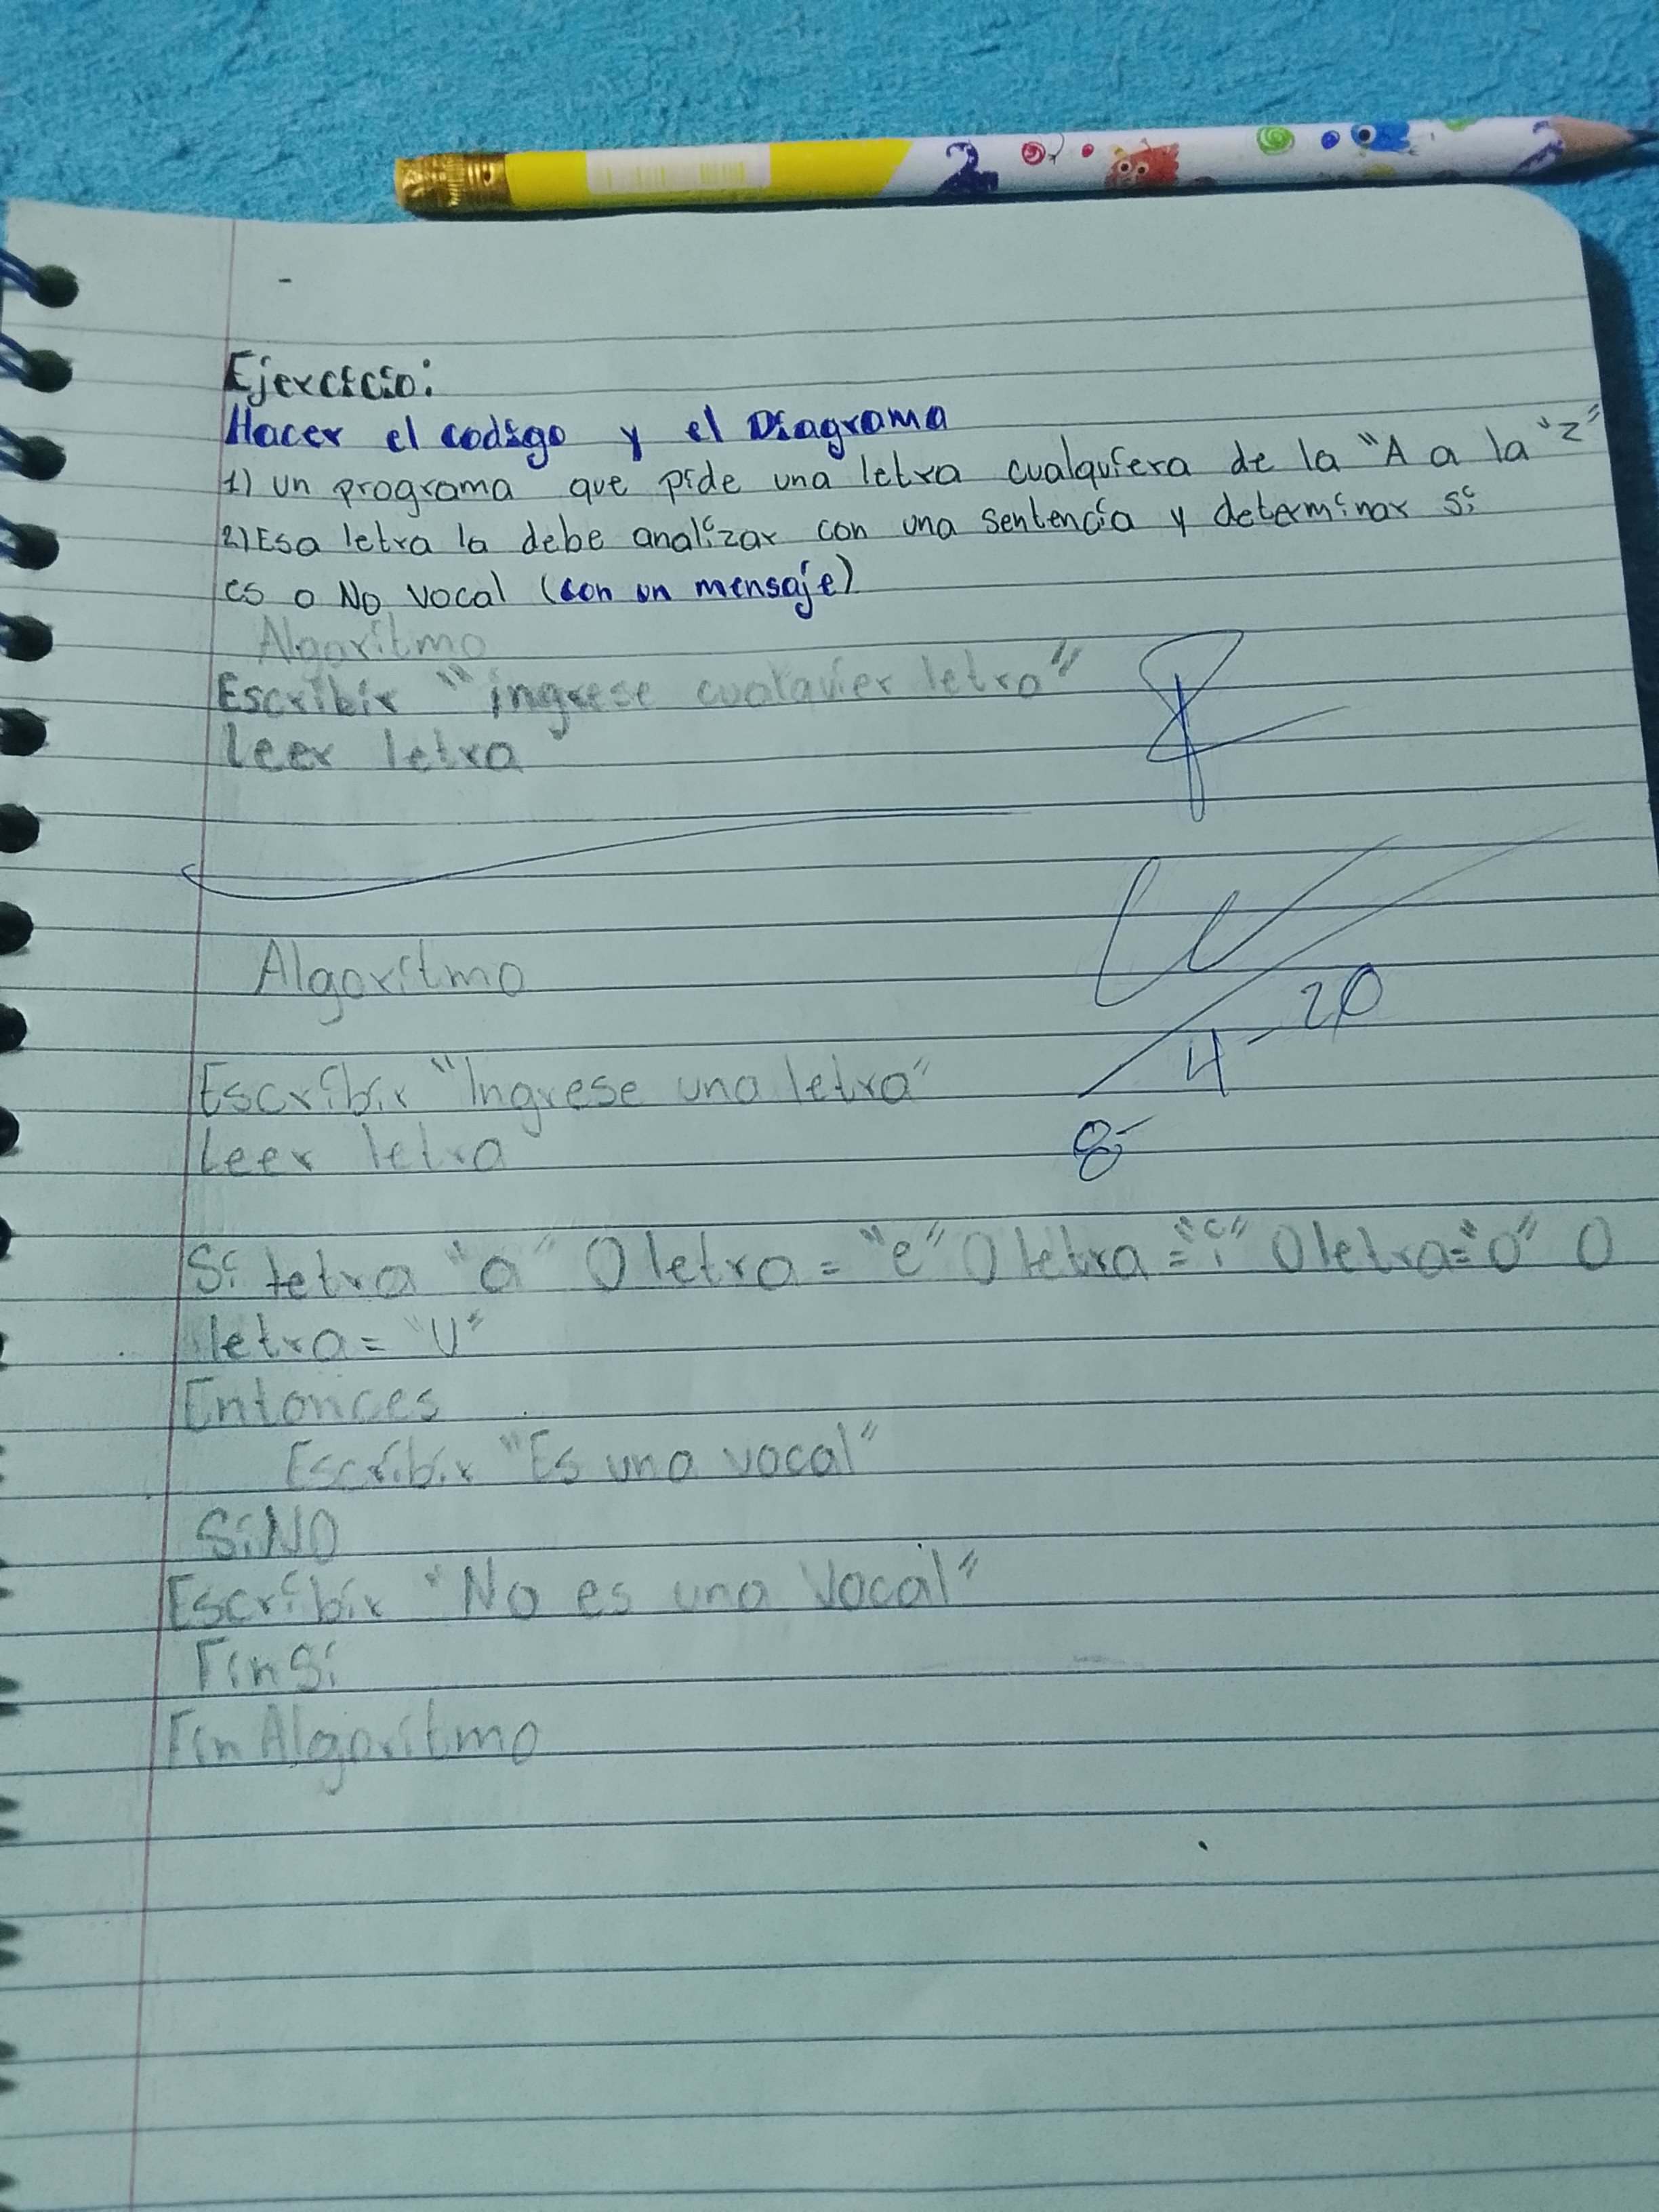 2
Ejercicio:
Hacer el codigo y el Diagrama
1) un programa que pide una letra cualquiera de la "A a la "z"
2) Esa letra la debe analizar con una sentencia y determinar si
es o No vocal (con un mensaje)
Algoritmo
Escribir "ingrese cualquier letra"
Leer letra
Algoritmo
20
4
Escribir "Ingrese una letra"
8
Leer letra
Si letra "a" O letra = "e" O letra = "i" O letra = "o" O
letra = "U"
Entonces
Escribir "Es una vocal"
SiNO
Escribir "No es una Vocal"
FinSi
Fin Algoritmo